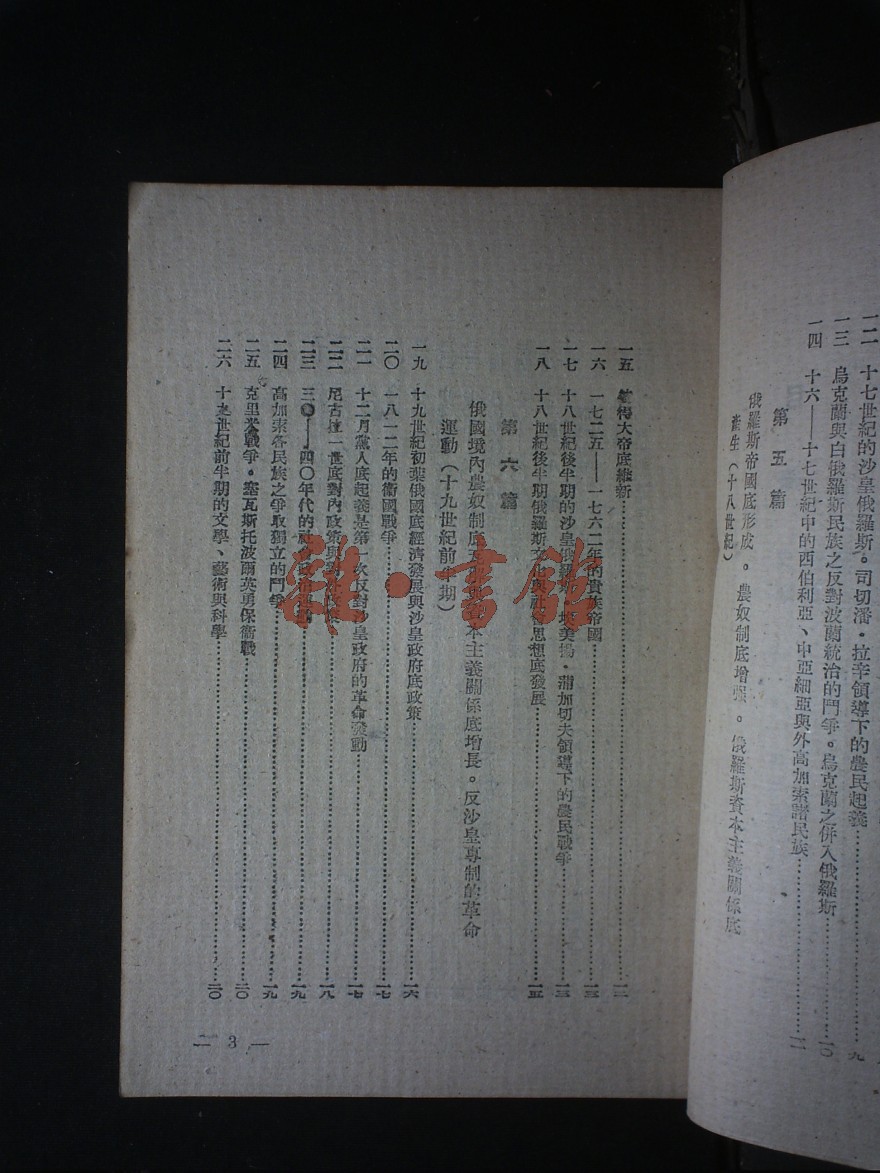 一二 十七世紀的沙皇俄羅斯。司切潘·拉辛領導下的農民起義 九
一三 烏克蘭與白俄羅斯民族之反對波蘭統治的鬥爭。烏克蘭之併入俄羅斯 一〇
一四 十六——十七世紀中的西伯利亞、中亞細亞與外高加索諸民族
第五篇
俄羅斯帝國底形成。農奴制底增强。俄羅斯資本主義關係底
產生（十八世紀）
一五 得大帝底維新 一二
一六 一七二五——一七六二年的貴族帝國 一三
一七 十八世紀後半期的沙皇俄羅斯。美揚·蒲加切夫領導下的農民戰爭 一三
一八 十八世紀後半期俄羅斯文化與社會思想底發展 一五
第六篇
俄國境內農奴制底與資本主義關係底增長。反沙皇專制的革命
運動（十九世紀前半期）
一九 十九世紀初葉俄國底經濟發展與沙皇政府底政策 一六
二〇 一八一二年的衛國戰爭 一七
二一 十二月黨人底起義是第一次反對沙皇政府的革命發動 一七
二二 尼古拉一世底對內政策與對外政策 一八
二三 三〇——四〇年代的社會政治 一九
二四 高加索各民族之爭取獨立的鬥爭 一九
二五 克里米戰爭。塞瓦斯托波爾英勇保衛戰 二〇
二六 十九世紀前半期的文學、藝術與科學 二〇
— 3 —
雜·書館